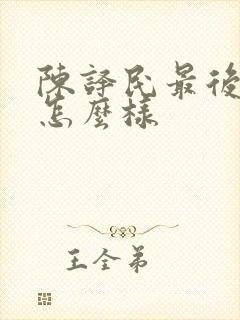 陳譯民最後
怎麼樣
王全弟